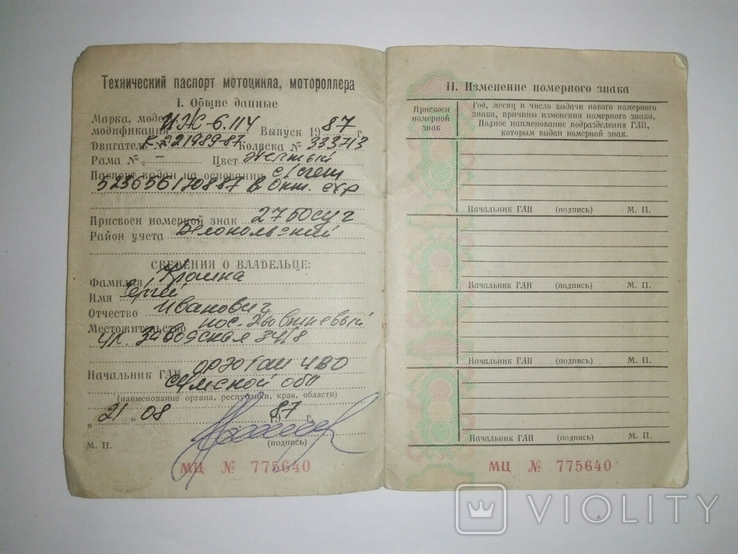 Технический паспорт мотоцикла, мотороллера
I. Общие данные
Марка, модель
модификация ИЖ-6.114 Выпуск 1987 г.
Двигатель № 221989-87 Коляска № 333713
Рама № – Цвет Желтый
Паспорт выдан на основании
523656170887
Присвоен номерной знак 2760СУГ
Район учета Белопольский
СВЕДЕНИЯ О ВЛАДЕЛЬЦЕ:
Фамилия
Имя Сергей
Отчество Иванович
Местожительство пос.
ул. Заводская
Начальник ГАИ УВО
Сумской обл
(наименование органа, республики, края, области)
„21" 08 1987 г.
М. П. (подпись)
МЦ № 775640
II. Изменение номерного знака
Присвоен номерной знак
Год, месяц и число выдачи нового номерного знака, причина изменения номерного знака. Полное наименование подразделения ГАИ, которым выдан номерной знак.
Начальник ГАИ (подпись) М. П.
Начальник ГАИ (подпись) М. П.
Начальник ГАИ (подпись) М. П.
Начальник ГАИ (подпись) М. П.
МЦ № 775640
VIOLITY